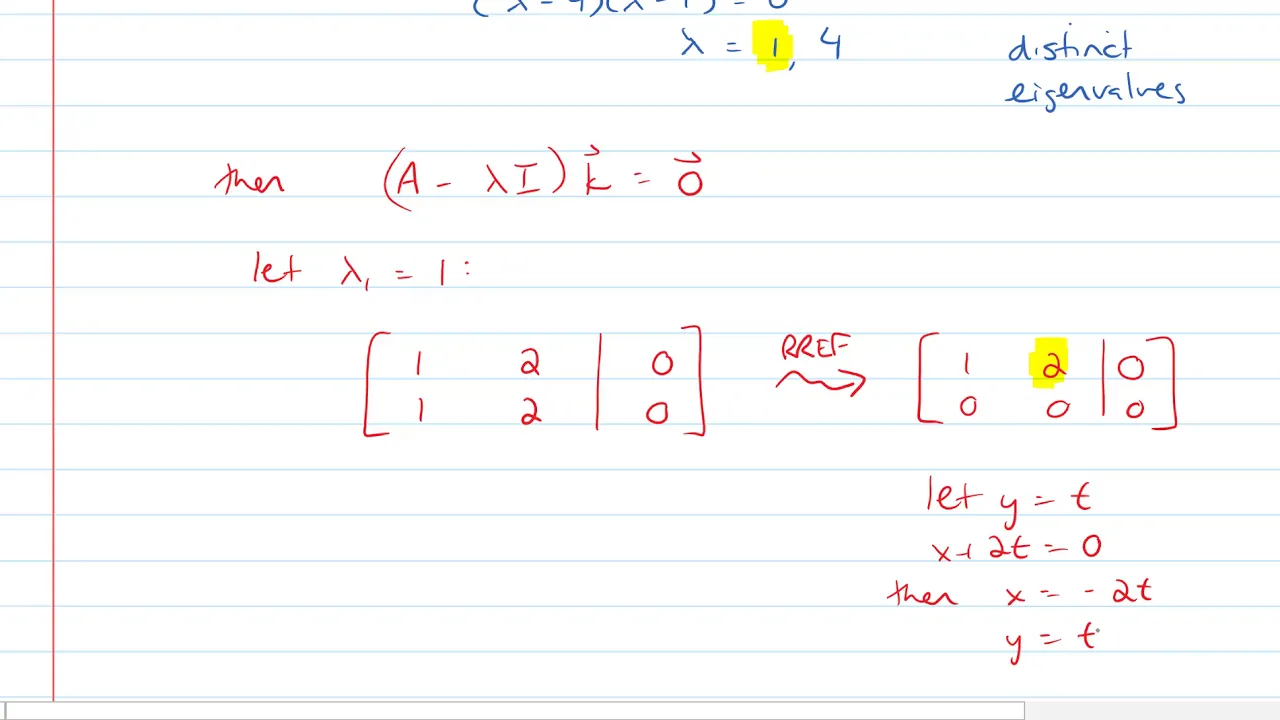 (λ - 4)(λ - 1) = 0
λ = 1, 4
distinct
eigenvalues
then (A - λI) k⃗ = 0⃗
let λ₁ = 1 :
[ 1 2 | 0 ] RREF [ 1 2 | 0 ]
[ 1 2 | 0 ] [ 0 0 | 0 ]
let y = t
x + 2t = 0
then x = - 2t
y = t